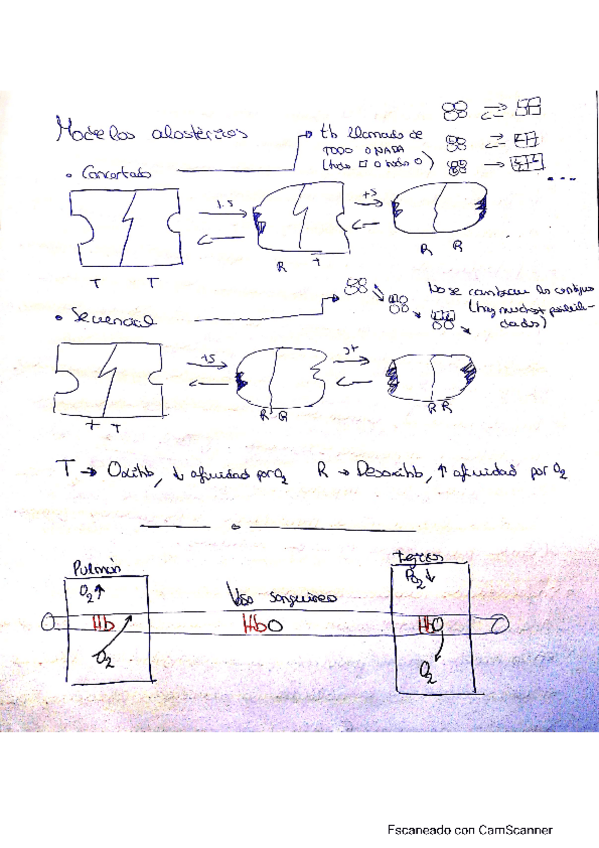 Modelos alostéricos
tb llamado de
TODO O NADA
(todo □ o todo O)
• Concertado
+S
+S
...
T T
R +
R R
• Secuencial
No se cambian los contiguos
(hay muchas posibili-
dades)
+S
S+
+ T
R R
R R
T → Oxihb, ↓ afinidad por O2 R → Desoxihb, ↑ afinidad por O2
Pulmón
O2 ↑
Hb
O2
Vaso sanguíneo
HbO
Tejidos
PO2 ↓
HbO
O2
Escaneado con CamScanner